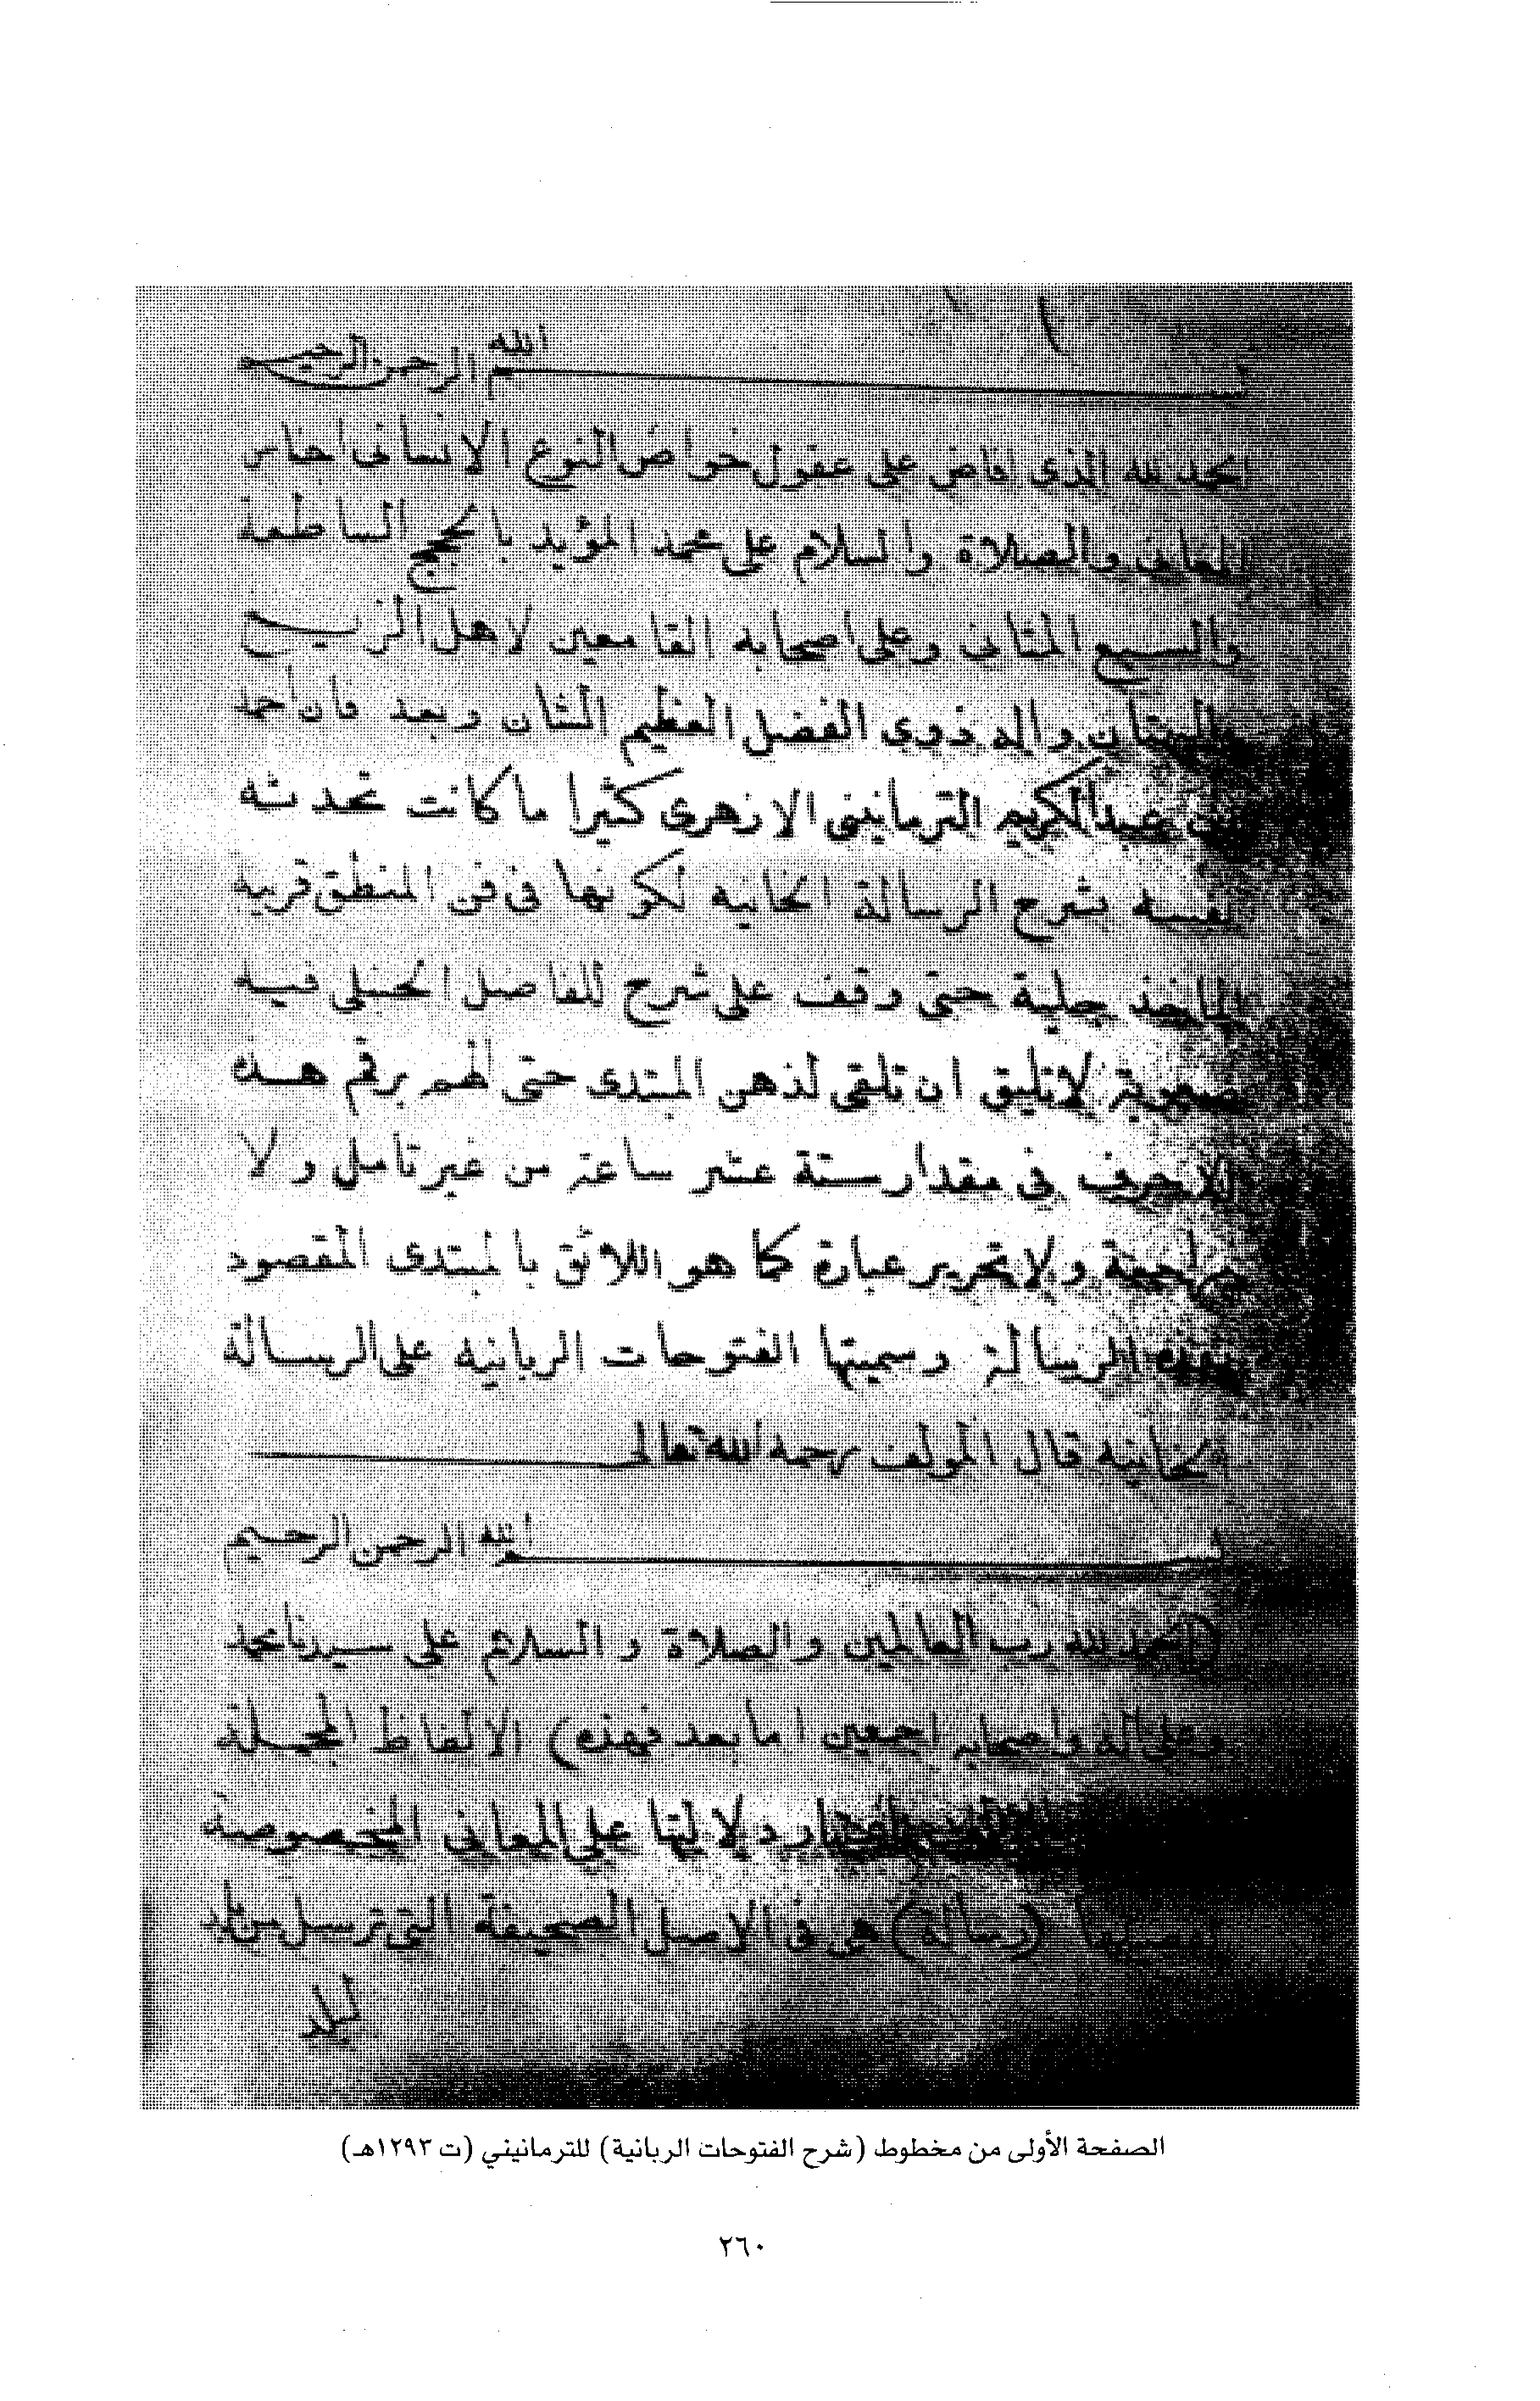 بسم الله الرحمن الرحيم
الحمد لله الذي افاض على عقول خواص النوع الانسانى اجناس
المعانى والصلاة والسلام على محمد المؤيد بالحجج الساطعة
والسبع المثانى وعلى اصحابه القامعين لاهل الزيـــغ
واله ذوى الفضل العظيم الشان وبعد فان احمد
بن عبد الكريم الترمانينى الازهرى كثيرا ما كانت تحدثه
نفسه بشرح الرسالة الخانيه لكونها فى فن المنطق قريبة
الماخذ جلية حتى وقف على شرح للفاضل الحنبلى فيه
صعوبة لا تليق ان تلقى لذهن المبتدى حتى الهم برقم هذه
الاحرف فى مقدار ستة عشر ساعة من غير تامل ولا
مراجعة ولا تحرير عبارة كما هو اللائق بالمبتدى المقصود
بهذه الرسالة وسميتها الفتوحات الربانيه على الرسالة
الخانيه قال المولف رحمه الله تعالى
بسم الله الرحمن الرحيم
(الحمد لله رب العالمين والصلاة والسلام على سيدنا محمد
وعلى اله واصحابه اجمعين اما بعد فهذه) الالفاظ
دلالتها على المعانى المخصوصة
(رسالة) هى فى الاصل الصحيفة التى ترسل من بلد
لبلد
الصفحة الأولى من مخطوط (شرح الفتوحات الربانية) للترمانيني (ت ١٢٩٣هـ)
٢٦٠